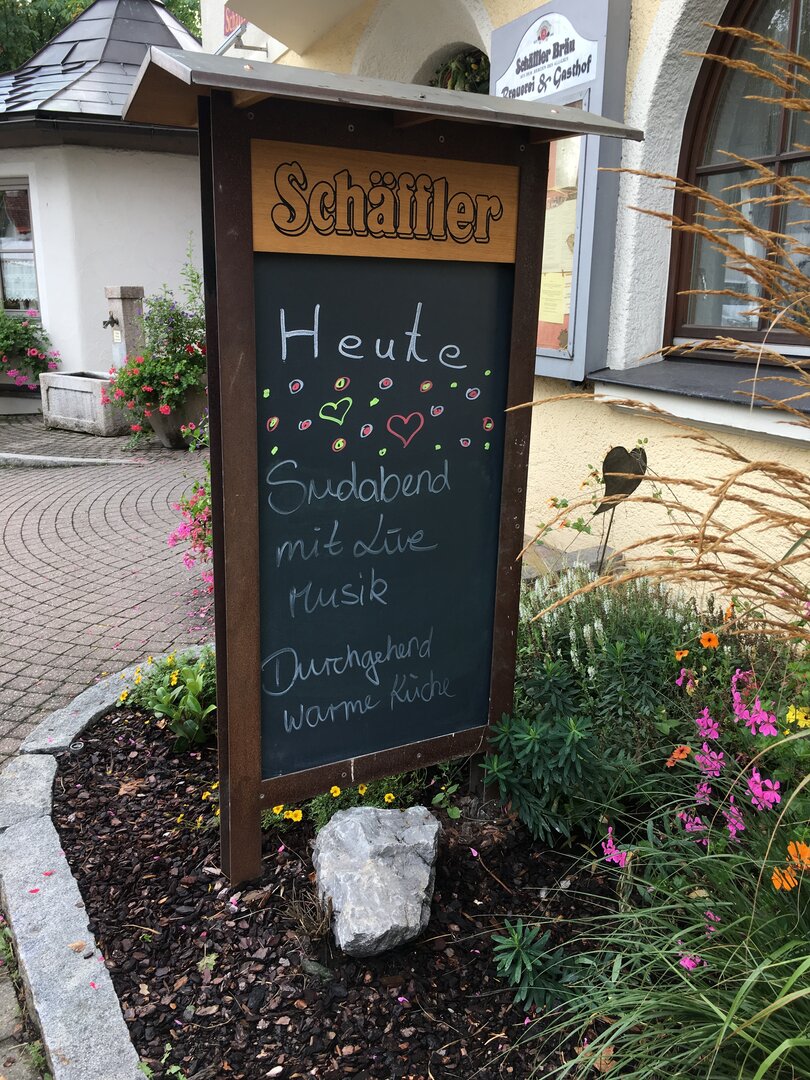 Schäffler Bräu
Brauerei & Gasthof
Schäffler
Heute
Sudabend
mit Live
Musik
Durchgehend
warme Küche